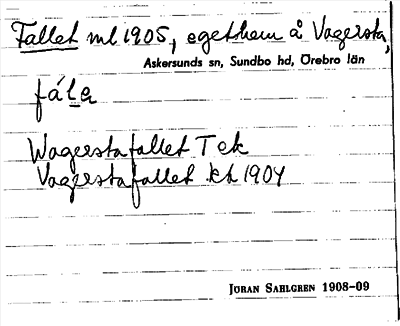 Fallet ml 1905, egethem å Vagersta,
Askersunds sn, Sundbo hd, Örebro län
fále
Wagerstafallet T ek
Vagerstafallet kt 1904
JÖRAN SAHLGREN 1908-09